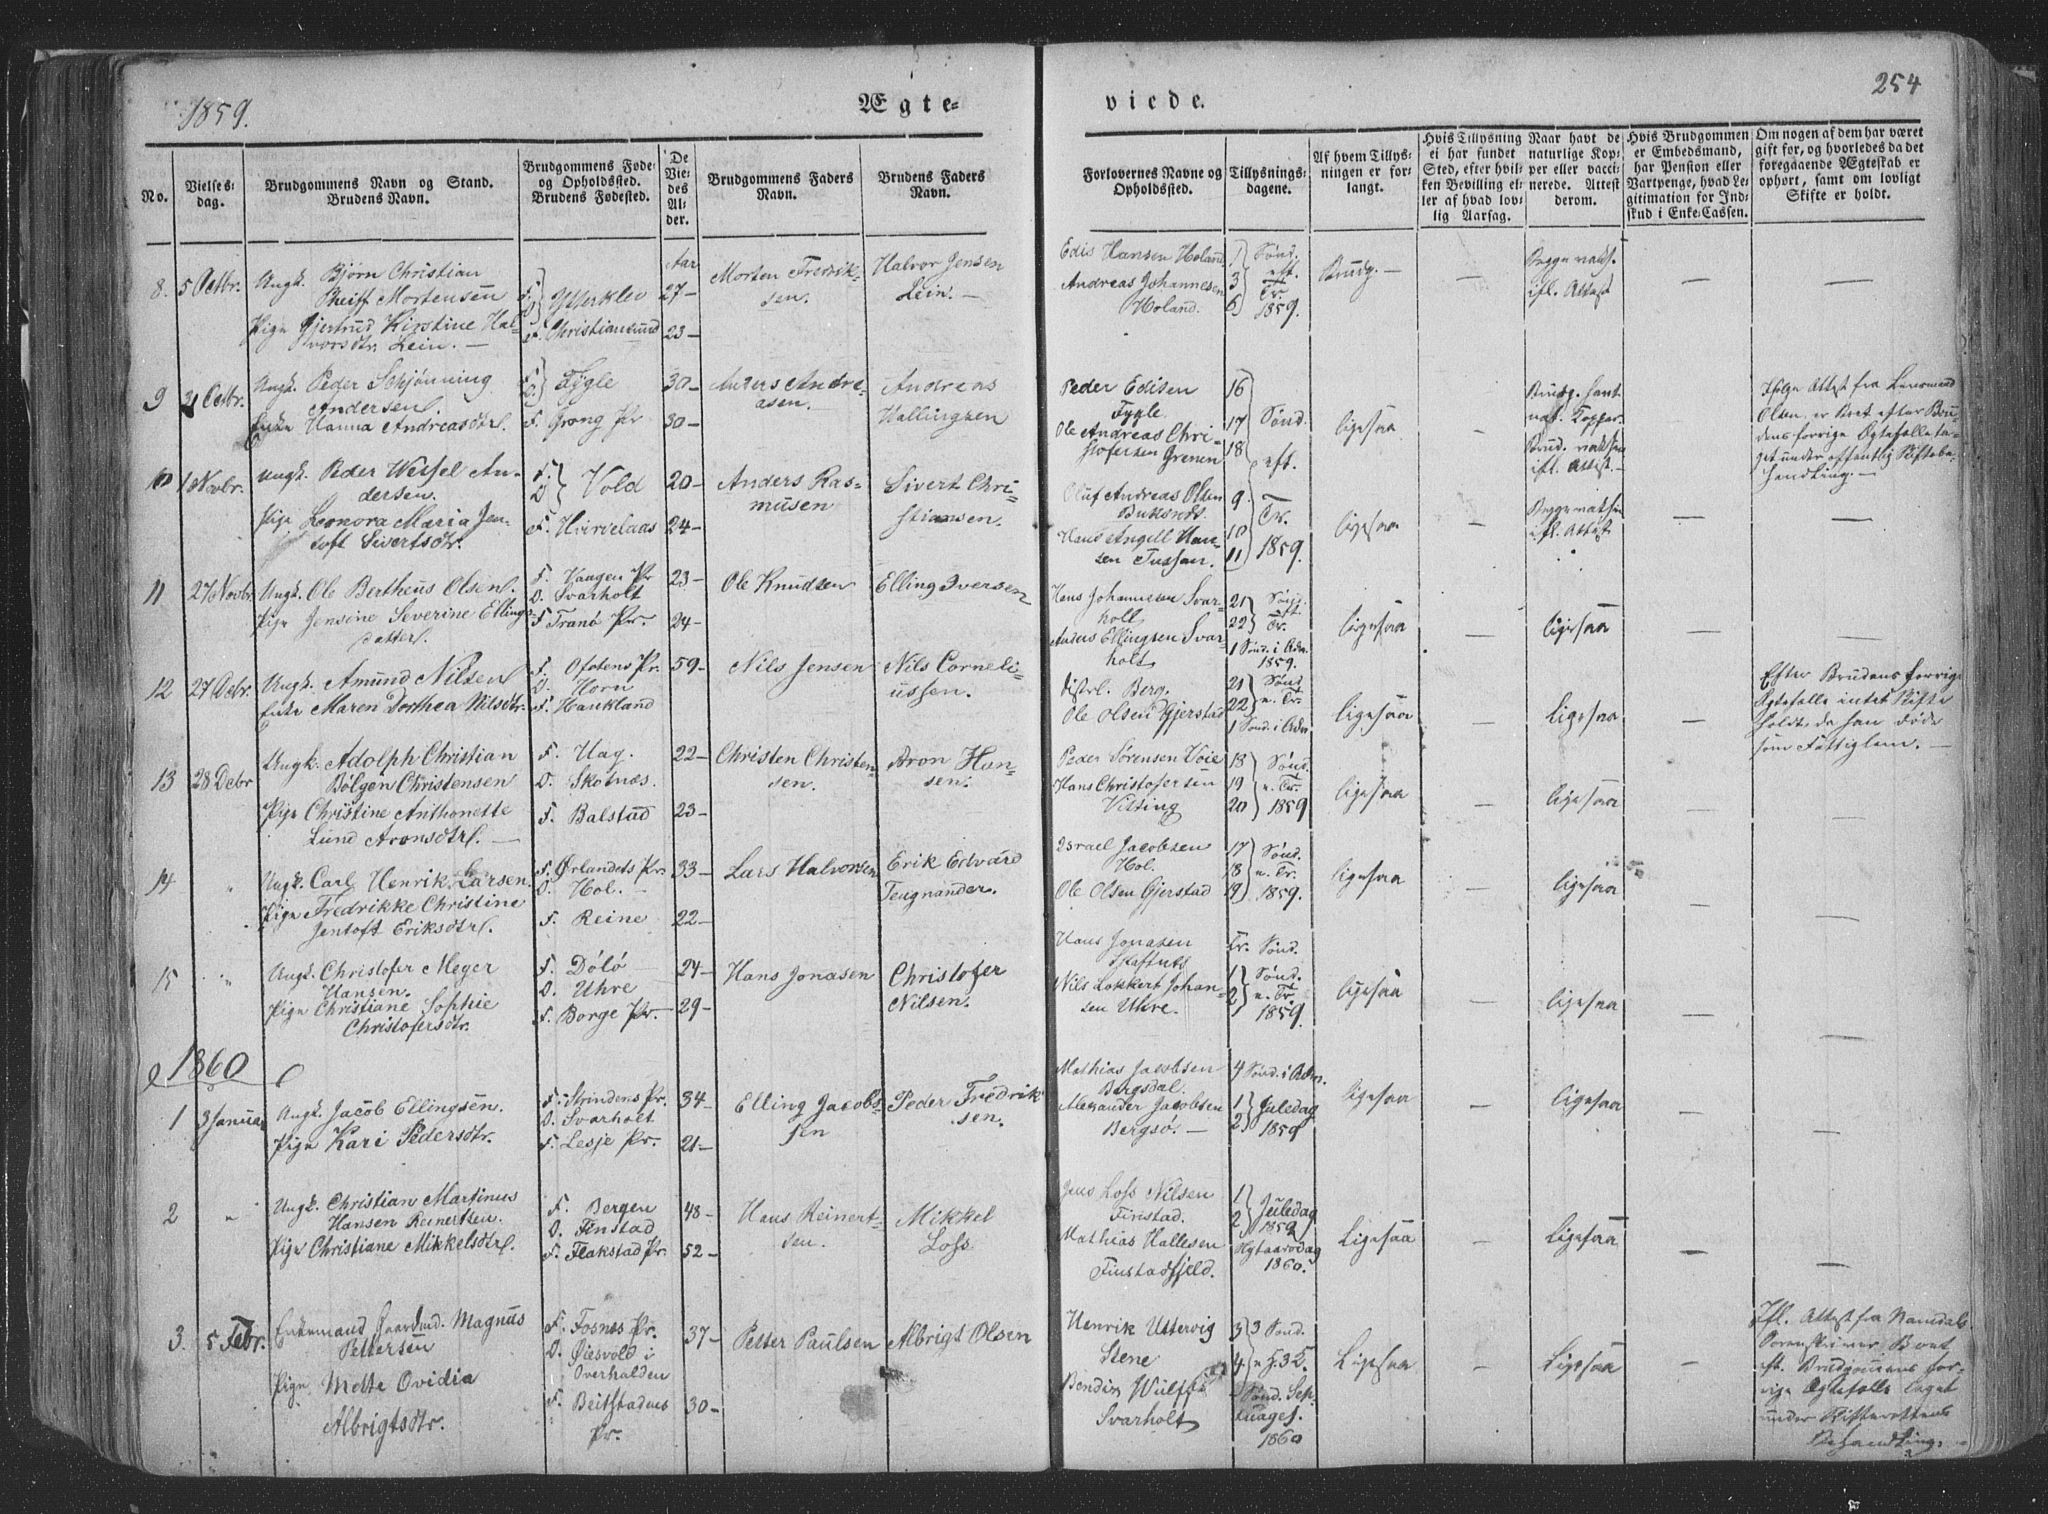 1859.
Ægte-
viede.
254
No.
Vielses-
dag.
Brudgommens Navn og Stand.
Brudens Navn.
Brudgommens Føde-
og Opholdssted.
Brudens Fødested.
De
Vie-
des
Al-
der.
Brudgommens Faders
Navn.
Brudens Faders
Navn.
Forlovernes Navne og
Opholdssted.
Tillysnings-
dagene.
Af hvem Tillys-
ningen er for-
langt.
Hvis Tillysning
ei har fundet
Sted, efter hvil-
ken Bevilling el-
ler af hvad lov-
lig Aarsag.
Naar havt de
naturlige Kop-
per eller vacci-
nerede. Attest
derom.
Hvis Brudgommen
er Embedsmand,
har Pension eller
Vartpenge, hvad Le-
gitimation for Ind-
skud i Enke-Cassen.
Om nogen af dem har været
gift før, og hvorledes da det
foregaaende Ægteskab er
ophørt, samt om lovligt
Skifte er holdt.
8. 5 Octbr.
Ungk. Bjørn Christian
Breiff Mortensen
Pige Gjertrud Kirstine Hal-
vorsdtr. Lein. —
F. D. } Ytterklev
F. Christiansund
Aar
27 —
23 —
Morten Fredrik-
sen.
Halvor Jensen
Lein. —
Edis Hansen Holand
Andreas Johannesen
Holand.
1 3 6 } Sønd. eft. Tr. 1859.
Brudg. —
—
Begge vaks.
ifl. Attest
—
—
9 Octbr.
Ungk. Peder Schjønning
Andersen.
Enke Hanna Andreasdtr.
F. D. } Fygle
F. Grong Pr
30 —
30 —
Anders Andre-
asen.
Andreas
Hallingzen
Peder Edisen
Fygle
Ole Andreas Chri-
stofersen Grenen
16 17 18 } Sønd. eft.
ligesaa
—
Brudg. havt
nat. Kopper.
Brud. vaks
ifl. Attest. —
—
Ifølge Attest fra Lensmand
Olsen, er Boet efter Bru-
dens forrige Ægtefælle ta-
get under offentlig Skiftebe-
handling. —
10 1 Novbr.
Ungk. Peder Wessel An-
dersen.
Pige Leonora Maria Jen-
toft Sivertsdtr.
F. D. } Vold
F. Hvirvelaas
20 —
24 —
Anders Ras-
musen
Sivert Chri-
stiansen.
Oluf Andreas Olsen
Buksnes.
Hans Angell Han-
sen Tussan.
9 10 11 } Tr. 1859.
ligesaa
—
Begge vaks
ifl. Attest
—
—
11 27 Novbr.
Ungk. Ole Bertheus Olsen.
Pige Jensine Severine Ellings-
datter.
F. Vaagen Pr
O. Svarholt
F. Tranø Pr.
23 —
24 —
Ole Knudsen
Elling Iversen
Hans Johannesen Svar-
holt
Anders Ellingsen Svar-
holt
21 22 } Sønd. eft. Tr.
1 Sønd. i Adv. 1859.
ligesaa
—
ligesaa
—
—
12 27 Decbr.
Ungk. Amund Nilsen
Enke Maren Dorthea Nilsdtr.
F. Ofotens Pr.
O. Horn
F. Haukland
59 —
Nils Jensen
Nils Corneli-
ussen.
Distrl. Berg.
Ole Olsen Gjerstad
21 22 } Sønd e. Tr.
1 Sønd. i Adv.
ligesaa
—
ligesaa
—
Efter Brudens forrige
Ægtefælle intet Skifte
holdt, da han døde
som Fattiglem. —
13 28 Debr
Ungk. Adolph Christian
Bølgen Christensen
Pige Christine Anthonette
Lund Aronsdtr. —
F. Hag.
O. Skotnæs.
F. Balstad
22 —
23 —
Christen Christen-
sen.
Aron Han-
sen.
Peder Sørensen Voie
Hans Christofersen
Visting
18 19 20 } Sønd. e. Tr. 1859
ligesaa
—
ligesaa
—
—
14 "
Ungk. Carl Henrik Larsen.
Pige Fredrikke Christine
Jentoft Eriksdtr.
F. Ørlandets Pr.
O. Hol. —
F. Reine
33 —
22 —
Lars Halvorsen
Erik Edvard
Teugnander.
Israel Jacobsen
Hol.
Ole Olsen Gjerstad
17 18 19 } Sønd. e. Tr. 1859.
ligesaa
—
ligesaa
—
—
15 "
Ungk. Christofer Meyer
Hansen.
Pige Christiane Sophie
Christofersdtr.
F. Dølø
O. Uhre
F. Borge Pr.
24 —
29 —
Hans Jonasen
Christofer
Nilsen.
Hans Jonasen
Nils Lokkert Johan-
sen Uhre.
Tr. Sønd.
1 2 } Sønd. e. Tr. 1859.
ligesaa
—
ligesaa
—
—
1860
1 3 Januar
Ungk. Jacob Ellingsen.
Pige Kari Pedersdtr.
F. Strindens Pr.
O. Svarholt
F. Lesje Pr.
34 —
21 —
Elling Jacob-
sen
Peder Fredrik-
sen.
Mathias Jacobsen
Bergsdal.
Alexander Jacobsen
Bergsø. —
4 Sønd. i Adv.
1 2 } Juledag 1859
ligesaa
—
ligesaa
—
—
2 "
Ungk. Christian Martinus
Hansen Reinertsen.
Pige Christiane Mikkelsdtr.
F. Bergen
O. Finstad
F. Flakstad Pr.
48 —
52 —
Hans Reinert-
sen.
Mikkel
Loss
Jens Loss Nilsen
Finstad.
Mathias Hallesen
Finstadfjeld.
1 2 } Juledag 1859
Nytaarsdag
1860.
Ligesaa
—
Ligesaa
—
—
3. 5 Febr.
Enkemand Gaardmd. Magnus
Pettersen
Pige Mette Ovidia
Albrigtsdtr.
F. Fosnes Pr.
O. Øiesvold i
Overhalden
F. Beitstadens
Pr.
37 —
30 —
Petter Paulsen
Albrigt Olsen
Henrik Uttervig
Stene
Bendix Wulff
Svarholt
3 4 } 3 Sønd. e. H. 3 K.
Sønd. Sep-
tuages.
1860
Ligesaa
—
Ligesaa
—
Ifl. Attest fra Namdals
Sorenskriver Boet
eft. Brudgommens for-
rige Ægtefælle taget
under Skifterettens
Behandling.